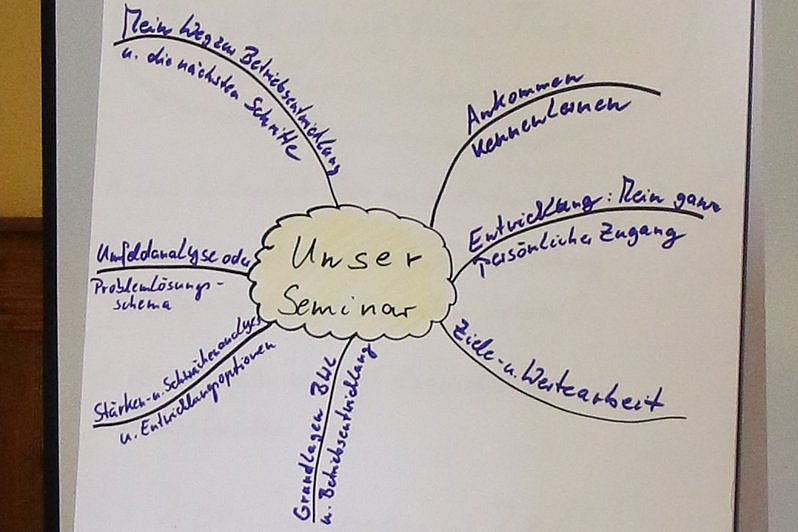 Unser
Seminar
Ankommen
Kennenlernen
Entwicklung: Mein ganz
persönlicher Zugang
Ziele- u. Wertearbeit
Grundlagen BWL
u. Betriebsentwicklung
Stärken- u. Schwächenanalyse
u. Entwicklungsoptionen
Umfeldanalyse oder
Problemlösungs-
schema
Mein Weg zur Betriebsentwicklung
u. die nächsten Schritte